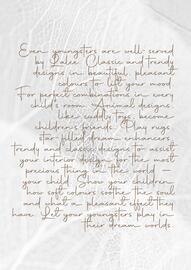 Even youngsters are well served
by Lalee. Classic and trendy
designs in beautiful, pleasant
colours to lift your mood.
For perfect combinations in every
child's room. Animal designs,
like cuddly toys, become
children's friends. Play rugs,
star filled dream dancers,
trendy and classic designs to assist
your interior design for the most
precious thing in the world –
your child. Show your children
how soft colours soothe the soul
and what a pleasant effect they
have. Let your youngsters play in
their dream worlds.